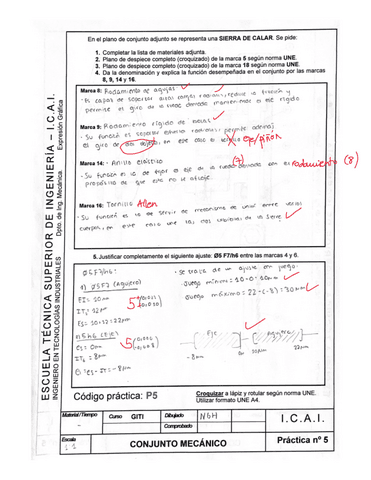 En el plano de conjunto adjunto se representa una SIERRA DE CALAR. Se pide:
1. Completar la lista de materiales adjunta.
2. Plano de despiece completo (croquizado) de la marca 5 según norma UNE.
3. Plano de despiece completo (croquizado) de la marca 18 según norma UNE.
4. Da la denominación y explica la función desempeñada en el conjunto por las marcas
8, 9, 14 y 16.
Marca 8: Rodamiento de agujas:
Es capaz de soportar altas cargas radiales, reduce la fricción y
permitir el giro de la rueda dentada manteniendo el eje rígido
Marca 9: Rodamiento rígido de bolas
Su función es soportar esfuerzos radiales, permite además
el giro de dos objetos, en este caso el
eje/piñón
Marca 14: - Anillo elástico
(7)
Su función es la de fijar el eje de la rueda dentada con el
rodamiento (8)
propósito de que esta no se afloje.
Marca 16: Tornillo Allen
Su función es la de servir de mecanismo de unión entre varios
cuerpos, en este caso une las dos carcasas de la sierra
5. Justificar completamente el siguiente ajuste: Ø5 F7/h6 entre las marcas 4 y 6.
Ø5F7/h6:
1) Ø5F7 (agujero)
EI = 10µm
IT7 = 12µm
ES = 10+12 = 22µm
5
h6 (eje)
es = 0µm
IT6 = 8µm
ei = es - IT = -8µm
5
- Se trata de un ajuste en juego
Juego mínimo = 10-0 = 10µm
Juego máximo = 22-(-8) = 30µm
Eje
Agujero
-8µm
0µ
10µm
22µm
ESCUELA TÉCNICA SUPERIOR DE INGENIERÍA – I.C.A.I.
INGENIERO EN TECNOLOGÍAS INDUSTRIALES
Dpto. de Ing. Mecánica.
Expresión Gráfica
Código práctica: P5
Croquizar a lápiz y rotular según norma UNE.
Utilizar formato UNE A4.
Material / Tiempo
-
Curso GITI
Dibujado
NGH
Comprobado
I.C.A.I.
Escala
1:1
CONJUNTO MECÁNICO
Práctica nº 5